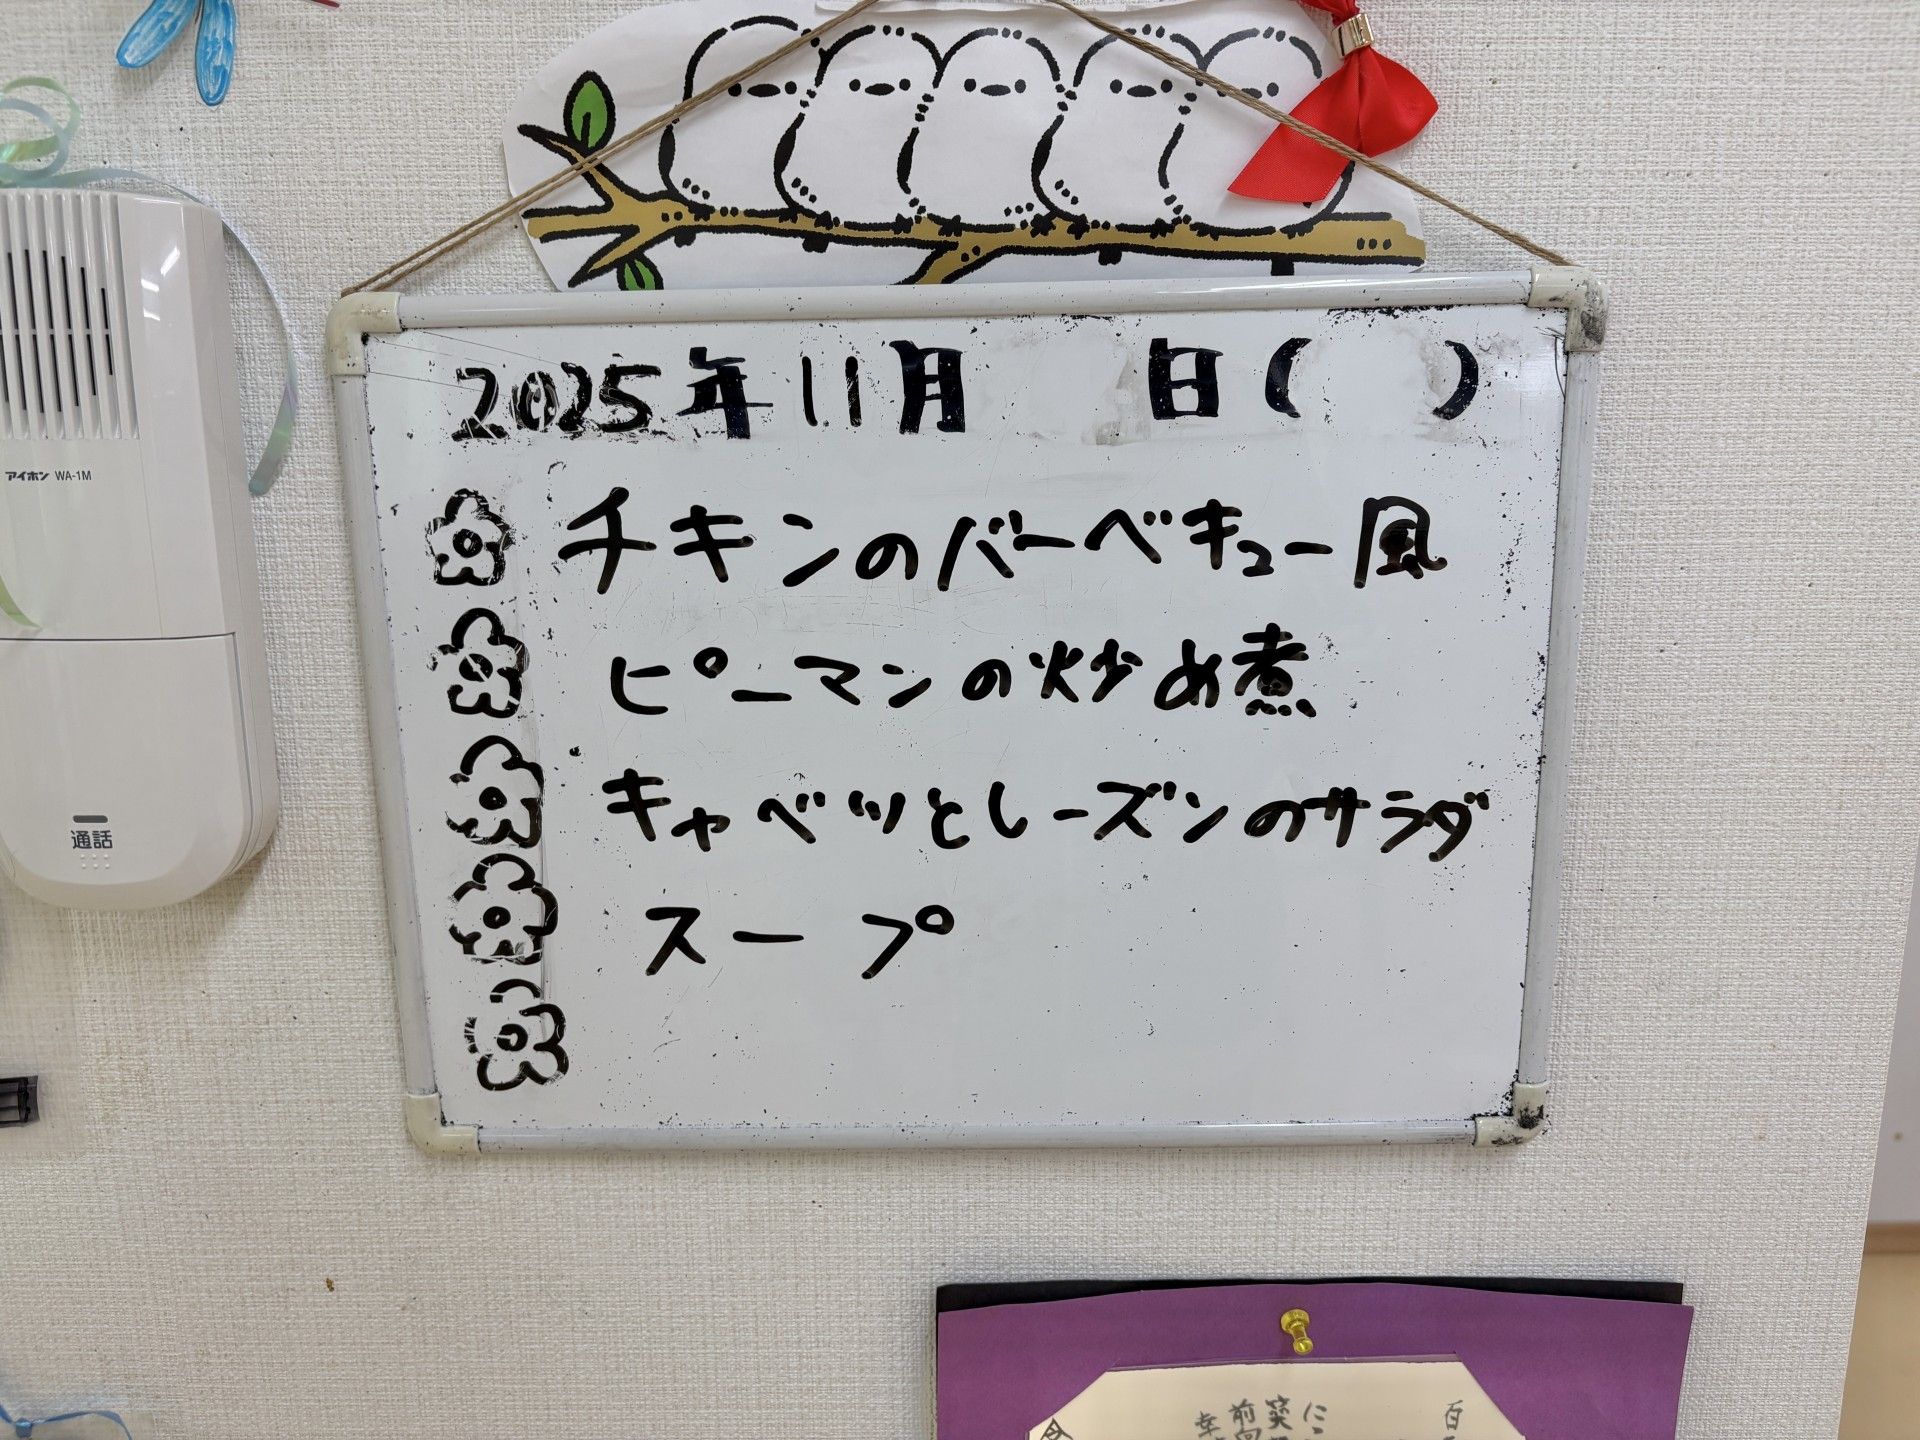 2025年11月 日( )
チキンのバーベキュー風
ピーマンの炒め煮
キャベツとレーズンのサラダ
スープ
アイホン WA-1M
通話